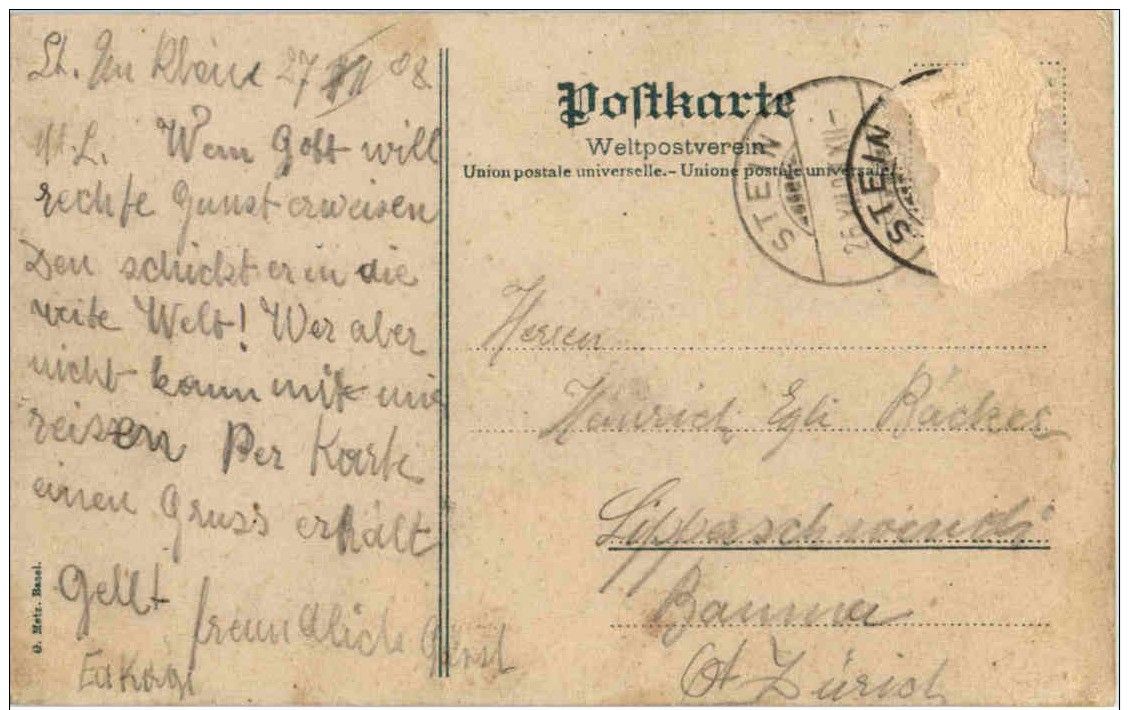 St. am Rhein 27 XII 08
M. L. Wem Gott will
rechte Gunst erweisen
Den schickt er in die
weite Welt! Wer aber
nicht kann mit mir
reisen Per Karte
einen Gruss erhält
Gellt
freundlich
G. Metz. Basel.
Postkarte
Weltpostverein
Union postale universelle.- Unione postale universale.
STEIN
STEIN
Herren
Heinrich Egli Bäcker
Lipperschwendi
Bauma
Ct Zürich